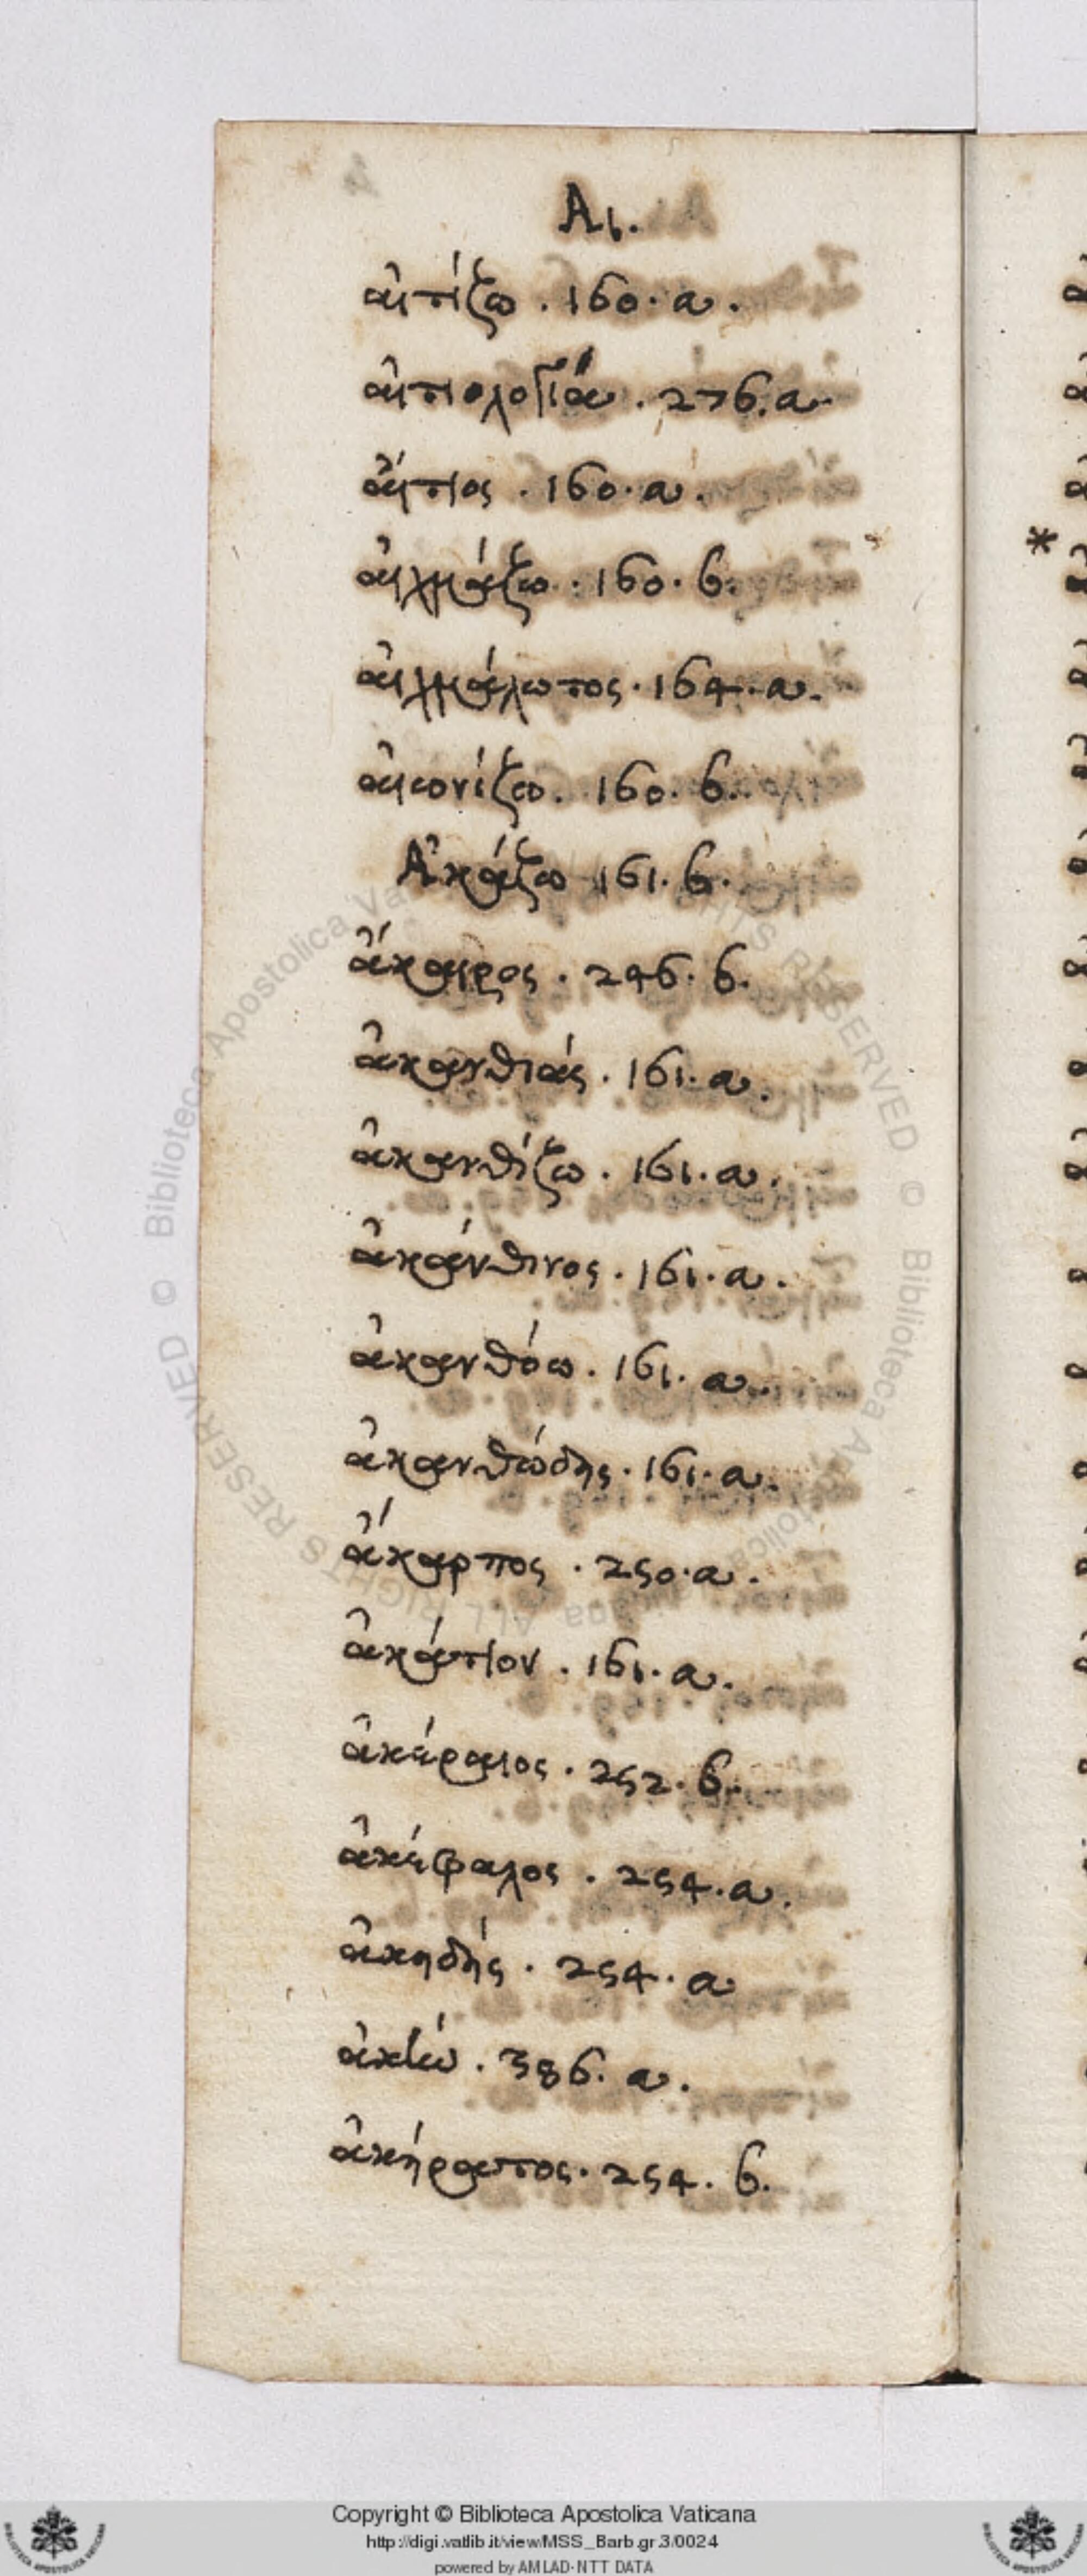 Αι.
αἰτίζω . 160. a.
αἰτιολογία . 276. a.
αἴτιος . 160. a.
αἰχμάζω . 160. b.
αἰχμάλωτος . 164. a.
αἰωνίζω . 160. b.
Ἀκάζω 161. b.
ἄκαιρος . 246. b.
ἀκανθιάς . 161. a.
ἀκανθίζω . 161. a.
ἀκάνθινος . 161. a.
ἀκανθόω . 161. a.
ἀκανθώδης . 161. a.
ἄκαρπος . 250. a.
ἀκάτιον . 161. a.
ἀκέραιος . 252. b.
ἀκέφαλος . 254. a.
ἀκηδής . 254. a
386. a.
ἀκήρατος . 254. b.
*
Copyright © Biblioteca Apostolica Vaticana
http://digi.vatlib.it/view/MSS_Barb.gr.3/0024
powered by AMLAD-NTT DATA